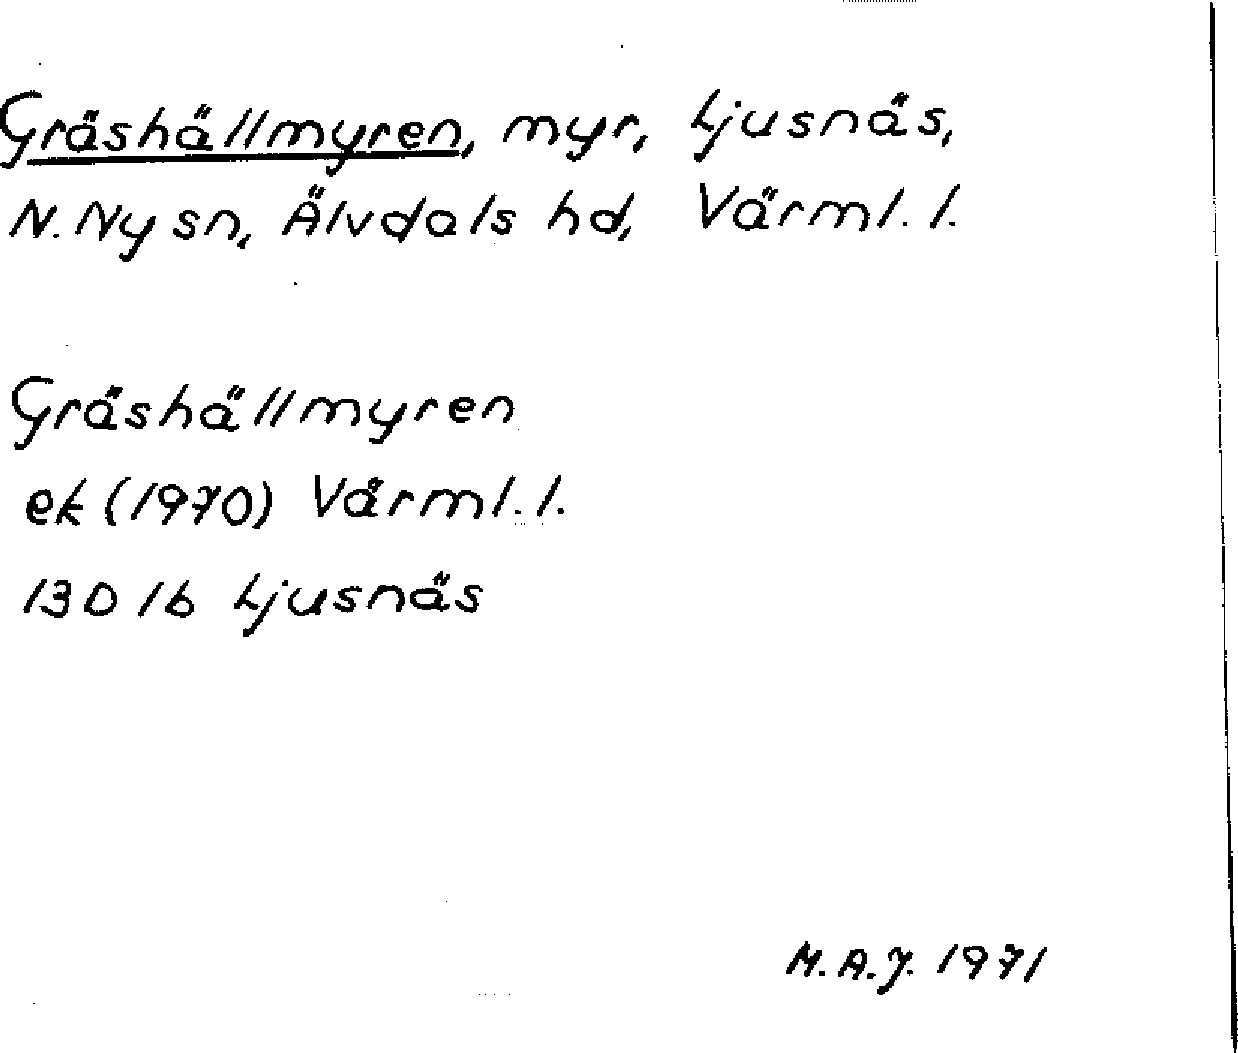 Gräshällmyren, myr, Ljusnäs,
N. Ny sn, Älvdals hd, Värml. l.
Gräshällmyren
ek (1970) Värml. l.
13D 1b Ljusnäs
M.A.J. 1971